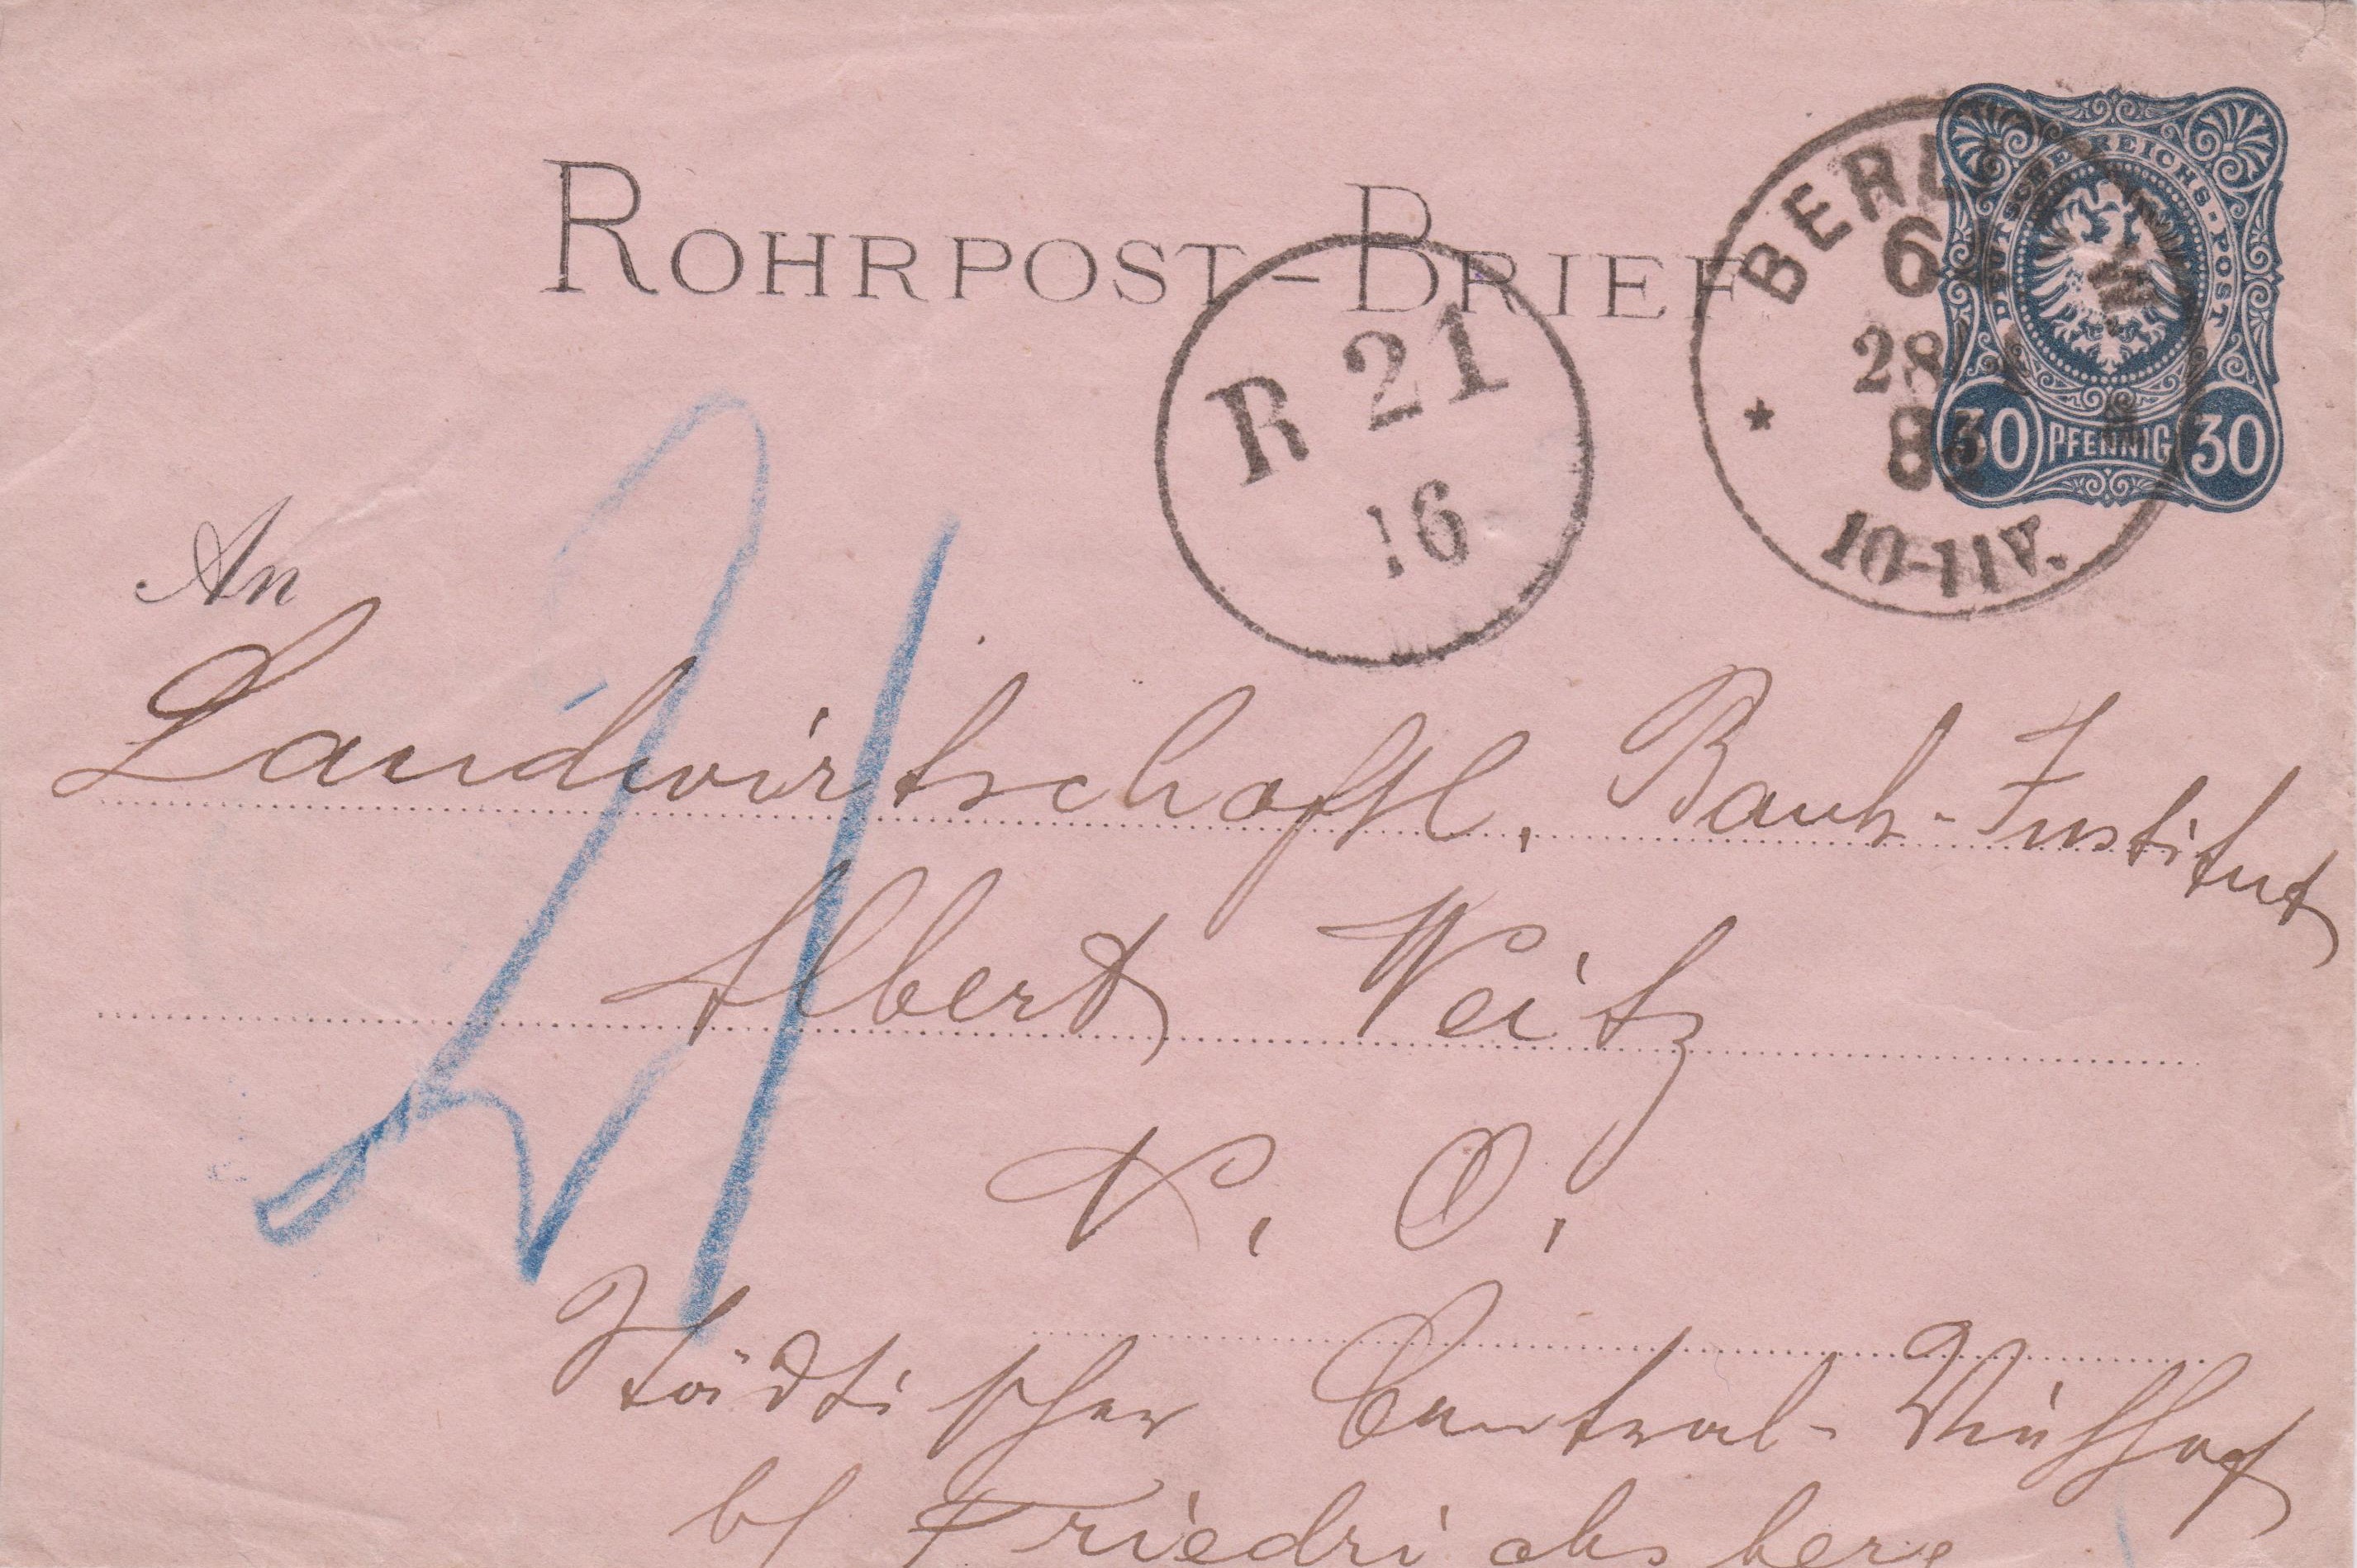 ROHRPOST-BRIEF
DEUTSCHE REICHS-POST
30 PFENNIG 30
BERLIN
28
10-11V.
R 21
16
An
Landwirtschaftl. Bank-Institut
Albert Veitz
N. O.
Städtischer Central-Viehhof
b/ Friedrichsberg
21